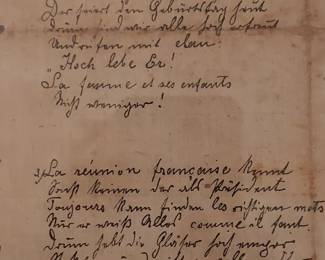 Der feiert den Geburtstag heut
Drum sind wir alle hoch erfreut
Und rufen mit elan:
"Hoch lebe Er!
La femme et ses enfants
Nicht weniger!
3) La réunion française kennt
Sonst keinen der als Président
Toujours kann finden les richtigen mots
Nur er weiß Alles comme il faut.
Drum hebt die Gläser hoch empor